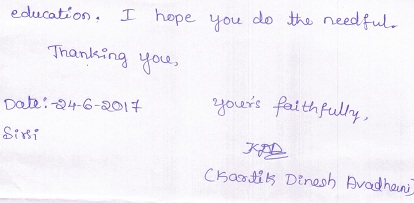 education. I hope you do the needful.
Thanking you,
Date:-24-6-2017
your's faithfully,
Sirsi
(Kartik Dinesh Avadhani)